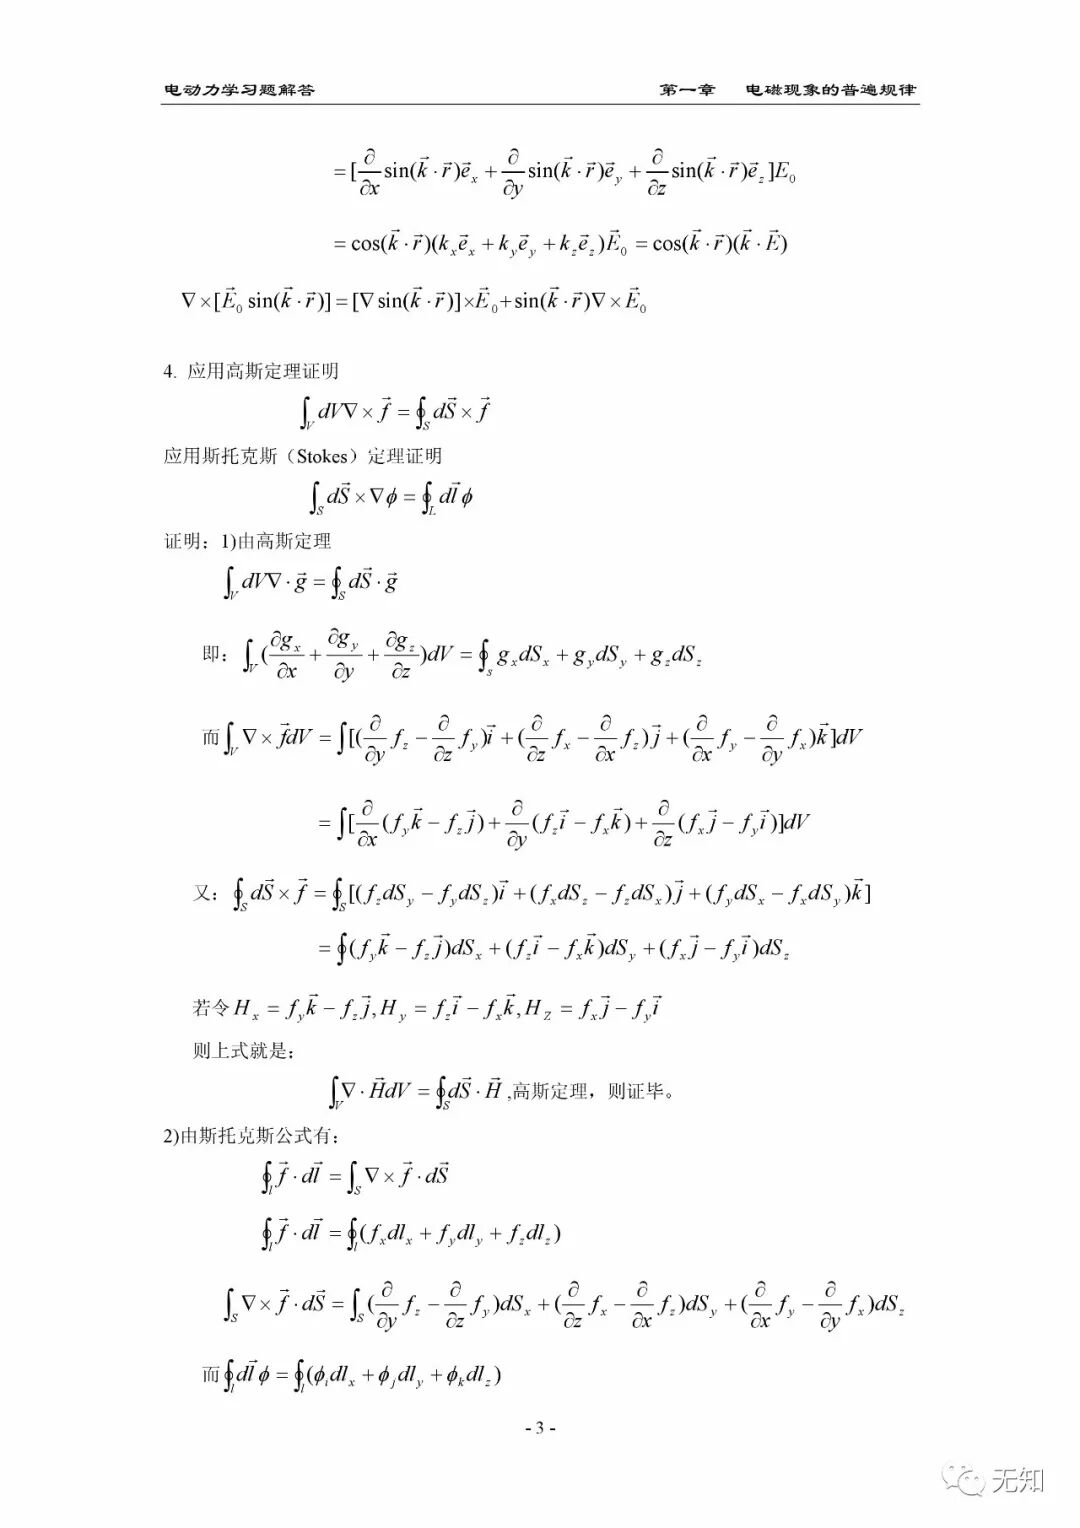 电动力学习题解答 第一章 电磁现象的普遍规律
= [∂/∂x sin(k⃗·r⃗)e⃗ₓ + ∂/∂y sin(k⃗·r⃗)e⃗_y + ∂/∂z sin(k⃗·r⃗)e⃗_z]E₀
= cos(k⃗·r⃗)(kₓe⃗ₓ + k_ye⃗_y + k_ze⃗_z)E⃗₀ = cos(k⃗·r⃗)(k⃗·E⃗)
∇×[E⃗₀ sin(k⃗·r⃗)] = [∇ sin(k⃗·r⃗)]×E⃗₀ + sin(k⃗·r⃗)∇×E⃗₀
4. 应用高斯定理证明
∫_V dV∇×f⃗ = ∮_S dS⃗×f⃗
应用斯托克斯（Stokes）定理证明
∫_S dS⃗×∇ϕ = ∮_L dl⃗ϕ
证明：1)由高斯定理
∫_V dV∇·g⃗ = ∮_S dS⃗·g⃗
即：∫_V (∂gₓ/∂x + ∂g_y/∂y + ∂g_z/∂z)dV = ∮_s gₓdSₓ + g_ydS_y + g_zdS_z
而∫_V ∇×f⃗dV = ∫[(∂/∂y f_z − ∂/∂z f_y)i⃗ + (∂/∂z fₓ − ∂/∂x f_z)j⃗ + (∂/∂x f_y − ∂/∂y fₓ)k⃗]dV
= ∫[∂/∂x (f_yk⃗ − f_zj⃗) + ∂/∂y (f_zi⃗ − fₓk⃗) + ∂/∂z (fₓj⃗ − f_yi⃗)]dV
又：∮_S dS⃗×f⃗ = ∮_S [(f_zdS_y − f_ydS_z)i⃗ + (fₓdS_z − f_zdSₓ)j⃗ + (f_ydSₓ − fₓdS_y)k⃗]
= ∮(f_yk⃗ − f_zj⃗)dSₓ + (f_zi⃗ − fₓk⃗)dS_y + (fₓj⃗ − f_yi⃗)dS_z
若令Hₓ = f_yk⃗ − f_zj⃗, H_y = f_zi⃗ − fₓk⃗, H_Z = fₓj⃗ − f_yi⃗
则上式就是：
∫_V ∇·H⃗dV = ∮_S dS⃗·H⃗ ,高斯定理，则证毕。
2)由斯托克斯公式有：
∮_l f⃗·dl⃗ = ∫_S ∇×f⃗·dS⃗
∮_l f⃗·dl⃗ = ∮_l (fₓdlₓ + f_ydl_y + f_zdl_z)
∫_S ∇×f⃗·dS⃗ = ∫_S (∂/∂y f_z − ∂/∂z f_y)dSₓ + (∂/∂z fₓ − ∂/∂x f_z)dS_y + (∂/∂x f_y − ∂/∂y fₓ)dS_z
而∮_l dl⃗ϕ = ∮_l (ϕ_idlₓ + ϕ_jdl_y + ϕ_kdl_z)
- 3 -
无知